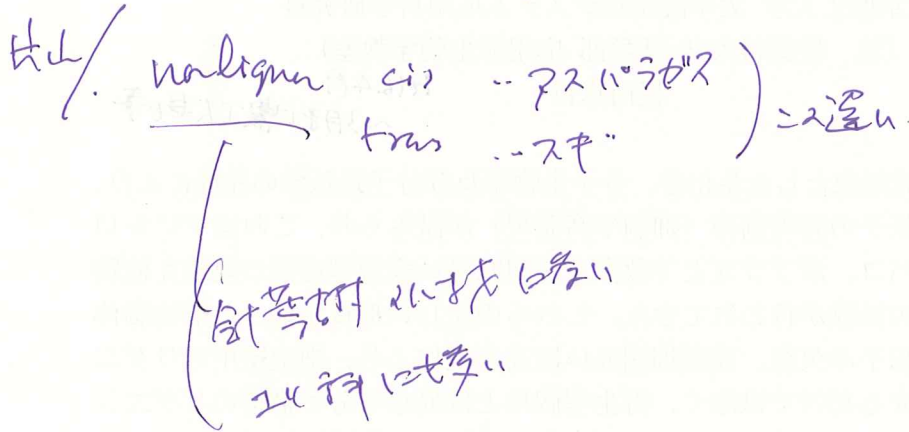 片山/. norlignan cis ‥アスパラガス
trans ‥スギ
この違い
針葉樹 心材に多い
ユリ科にも多い